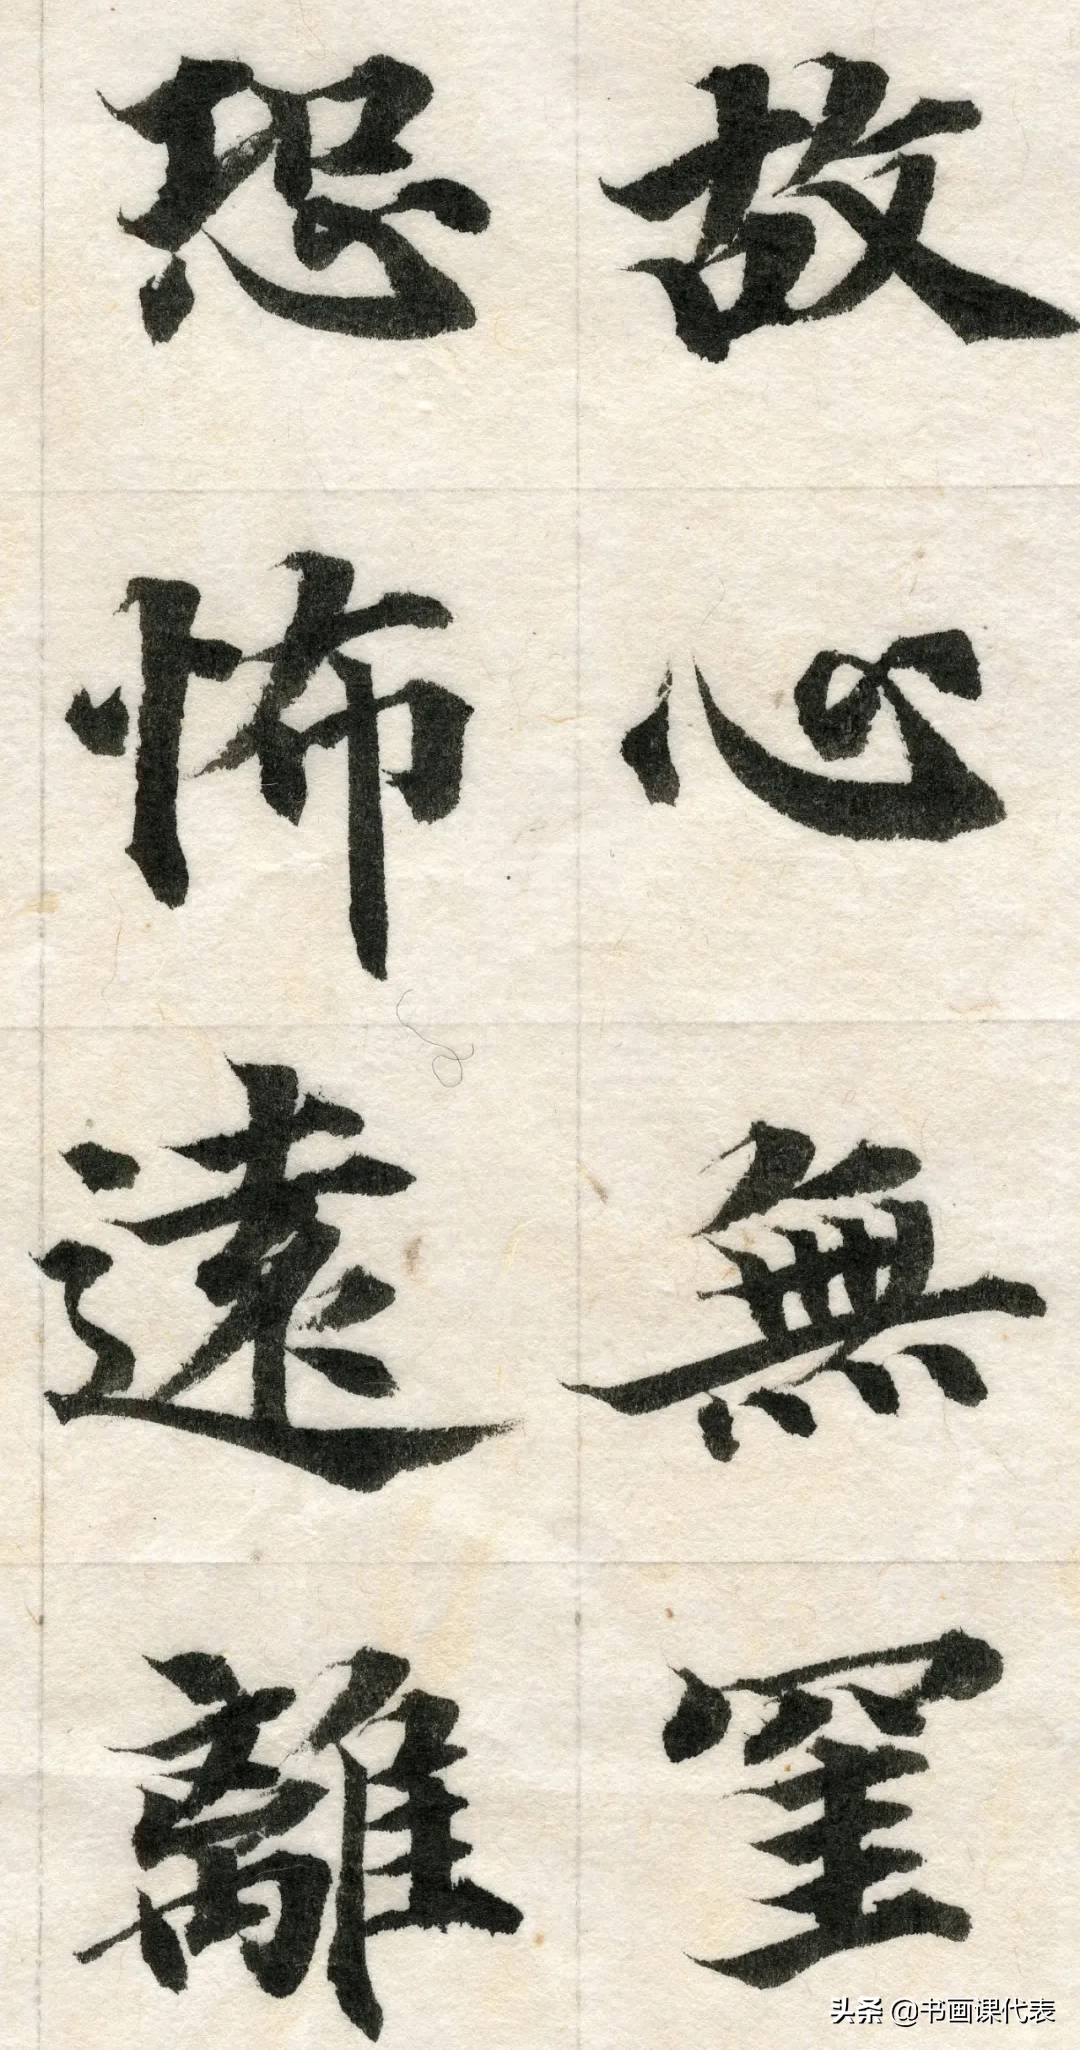 故心無罣
恐怖遠離
头条 @书画课代表